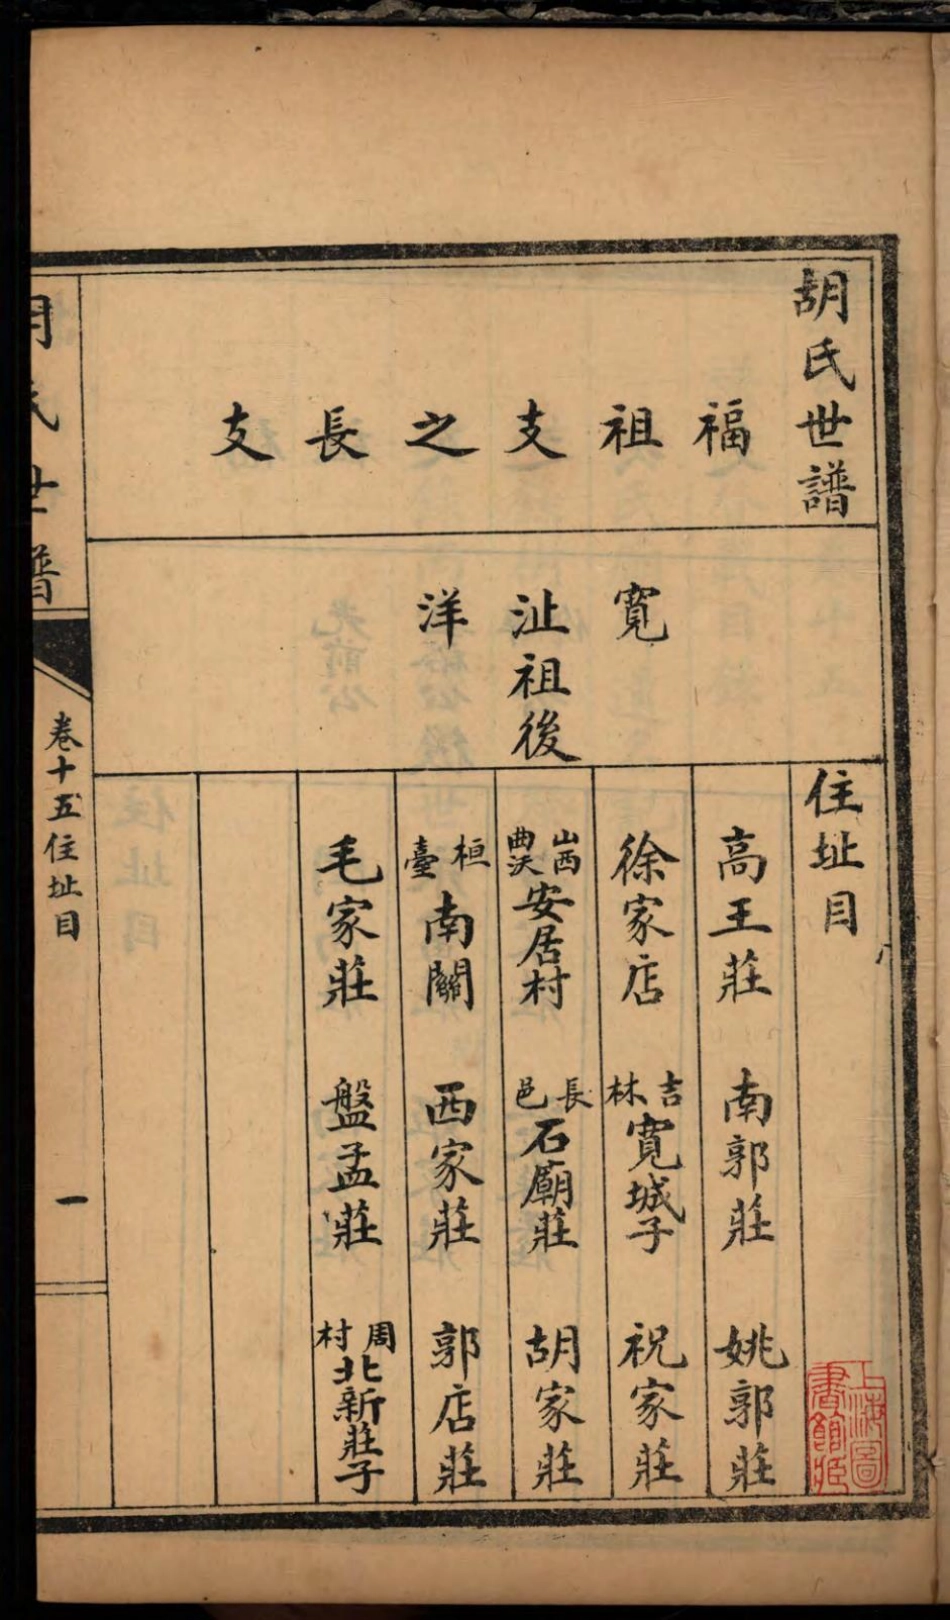 胡氏世譜
福祖支之長支
寬
沚祖後
洋
住址目
高王莊 南郭莊 姚郭莊
徐家店 吉林寬城子 祝家莊
山西曲沃安居村 長邑石廟莊 胡家莊
桓臺南關 西家莊 郭店莊
毛家莊 盤孟莊 周村北新莊子
胡氏世譜
卷十五住址目
一
上海圖
書館藏